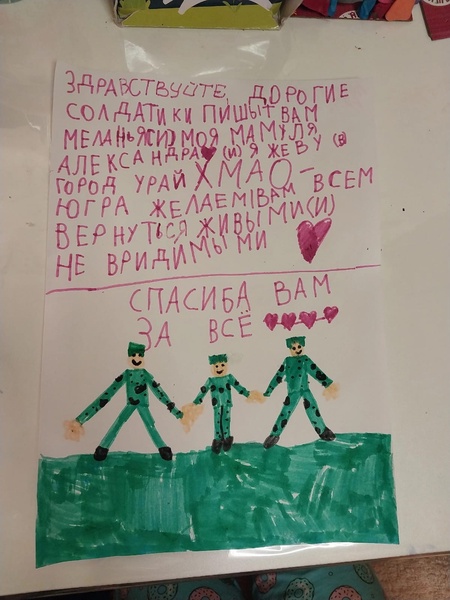 ЗДРАВСТВУЙТЕ, ДОРОГИЕ
СОЛДАТИКИ ПИШЫТ ВАМ
МЕЛАНЬЯ(И) МОЯ МАМУЛЯ
АЛЕКСАНДРА (И) Я ЖЕВУ (В)
ГОРОД УРАЙ ХМАО-
ЮГРА ЖЕЛАЕМ ВАМ ВСЕМ
ВЕРНУТЬСЯ ЖИВЫМИ (И)
НЕ ВРИДИМЫМИ
СПАСИБА ВАМ
ЗА ВСЁ